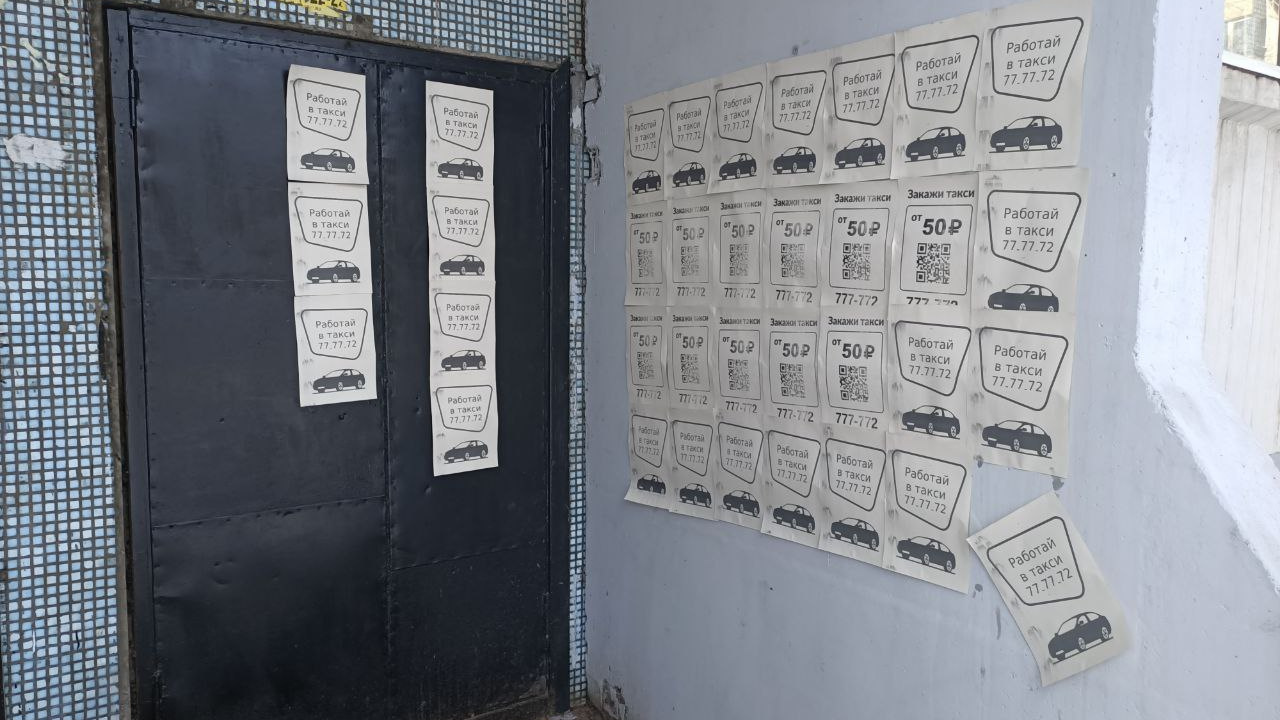 Работай
в такси
77.77.72
Работай
в такси
77.77.72
Работай
в такси
77.77.72
Работай
в такси
77.77.72
Работай
в такси
77.77.72
Работай
в такси
77.77.72
Работай
в такси
77.77.72
Работай
в такси
77.77.72
Работай
в такси
77.77.72
Работай
в такси
77.77.72
Работай
в такси
77.77.72
Работай
в такси
77.77.72
Работай
в такси
77.77.72
Работай
в такси
77.77.72
Закажи такси
от 50₽
777-772
Закажи такси
от 50₽
777-772
Закажи такси
от 50₽
777-772
Закажи такси
от 50₽
777-772
Закажи такси
от 50₽
777-772
Закажи такси
от 50₽
777-772
Работай
в такси
77.77.72
Закажи такси
от 50₽
777-772
Закажи такси
от 50₽
777-772
Закажи такси
от 50₽
777-772
Закажи такси
от 50₽
777-772
Закажи такси
от 50₽
777-772
Работай
в такси
77.77.72
Работай
в такси
77.77.72
Работай
в такси
77.77.72
Работай
в такси
77.77.72
Работай
в такси
77.77.72
Работай
в такси
77.77.72
Работай
в такси
77.77.72
Работай
в такси
77.77.72
Работай
в такси
77.77.72